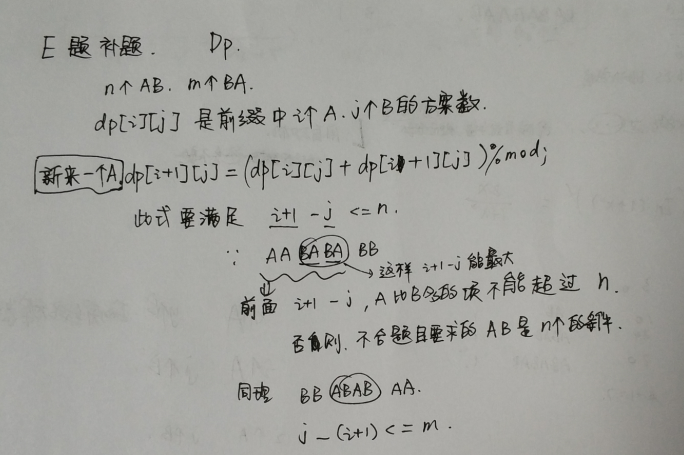 E题补题. Dp.
n个AB. m个BA.
dp[i][j] 是前缀中i个A. j个B的方案数.
新来一个A. dp[i+1][j] = (dp[i][j] + dp[i+1][j])%mod;
此式要满足 i+1 - j <= n.
∵ AA BA BA BB
这样 i+1-j 能最大
前面 i+1-j, A比B多的项不能超过 n.
否则. 不合题目要求的 AB 是 n个的条件.
同理 BB ABAB AA.
j - (i+1) <= m.